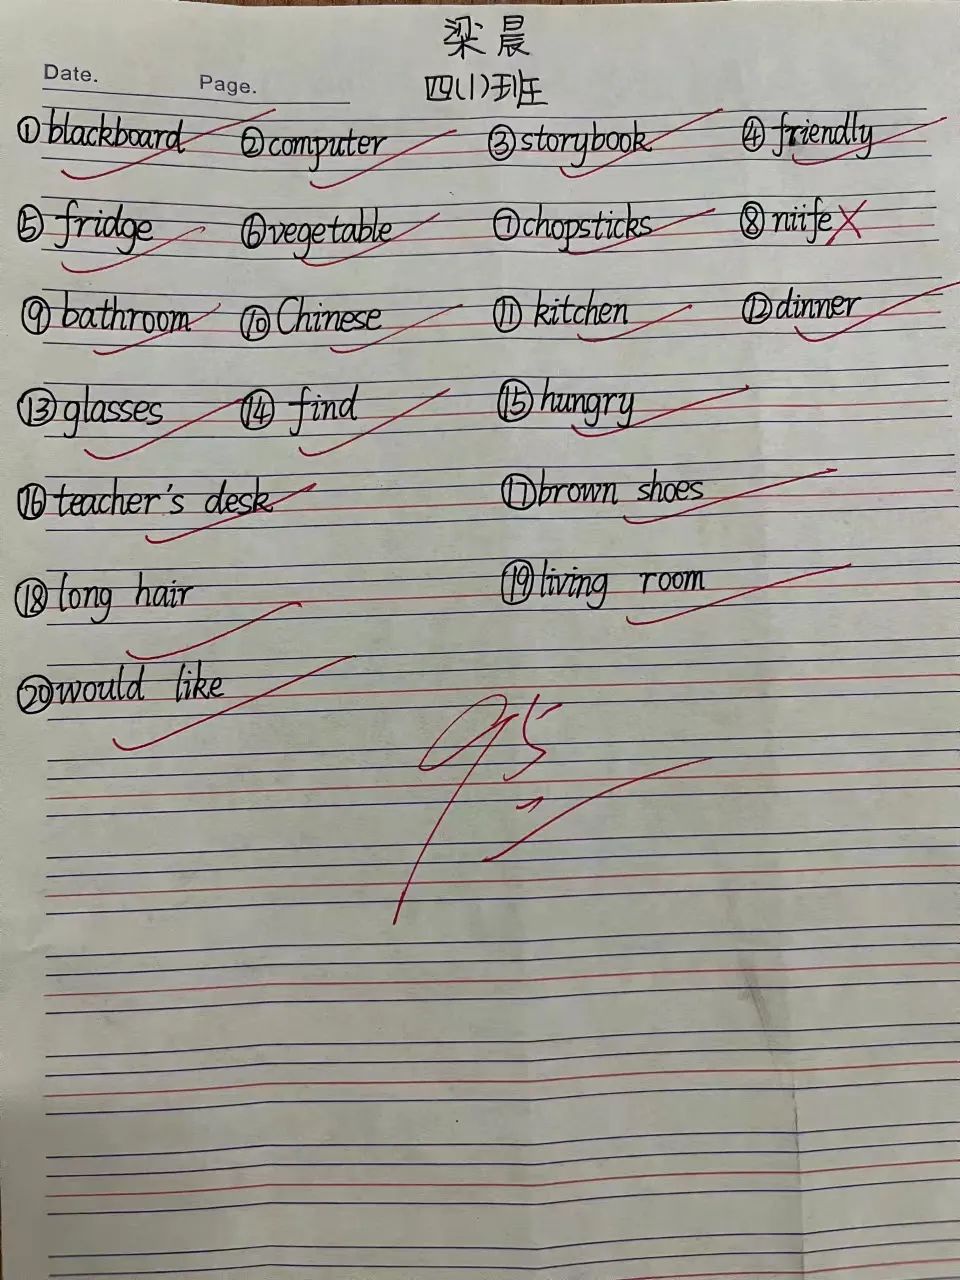 梁晨
Date. Page. 四(1)班
①blackboard ②computer ③storybook ④friendly
⑤fridge ⑥vegetable ⑦chopsticks ⑧niife
⑨bathroom ⑩Chinese ⑪kitchen ⑫dinner
⑬glasses ⑭find ⑮hungry
⑯teacher's desk ⑰brown shoes
⑱long hair ⑲living room
⑳would like
95